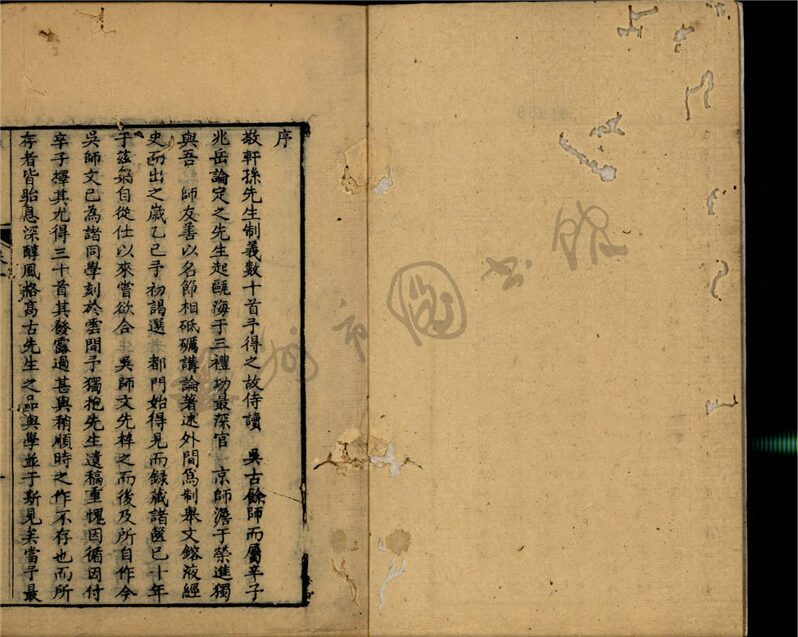 序
敬軒孫先生制義數十首予得之故侍讀 吳古餘師而屬辛子
兆岳論定之先生起甌海于三禮功最深官 京師澹于榮進獨
與吾 師友善以名節相砥礪講論著述外間爲制舉文鎔液經
史而出之嵗乙已予初謁選 都門始得見而録藏諸篋已十年
于茲矣自從仕以來嘗欲合 吳師文先梓之而後及所自作今
吳師文已為諸同學刻於雲間予獨抱先生遺稿重愧因循因付
辛子擇其尤得三十首其發露過甚與稍順時之作不存也而所
存者皆胎息深醇風格高古先生之品與學並于斯見矣當予最
州市圖書館